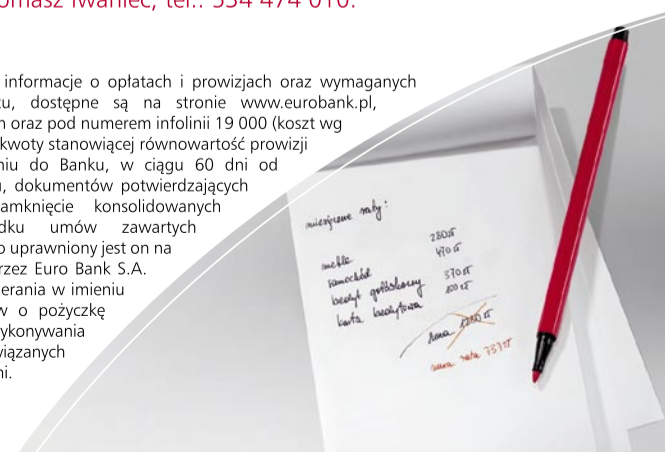 omasz Iwaniec, tel.: 534 474 010.
informacje o opłatach i prowizjach oraz wymaganych
u, dostępne są na stronie www.eurobank.pl,
oraz pod numerem infolinii 19 000 (koszt wg
kwoty stanowiącej równowartość prowizji
niu do Banku, w ciągu 60 dni od
, dokumentów potwierdzających
amknięcie konsolidowanych
dku umów zawartych
o uprawniony jest on na
rzez Euro Bank S.A.
ierania w imieniu
w o pożyczkę
ykonywania
wiązanych
ni.
miesięczne raty:
meble 280zł
samochód 470 zł
kredyt gotówkowy 370zł
karta kredytowa 100 zł
suma
nowa rata 737zł